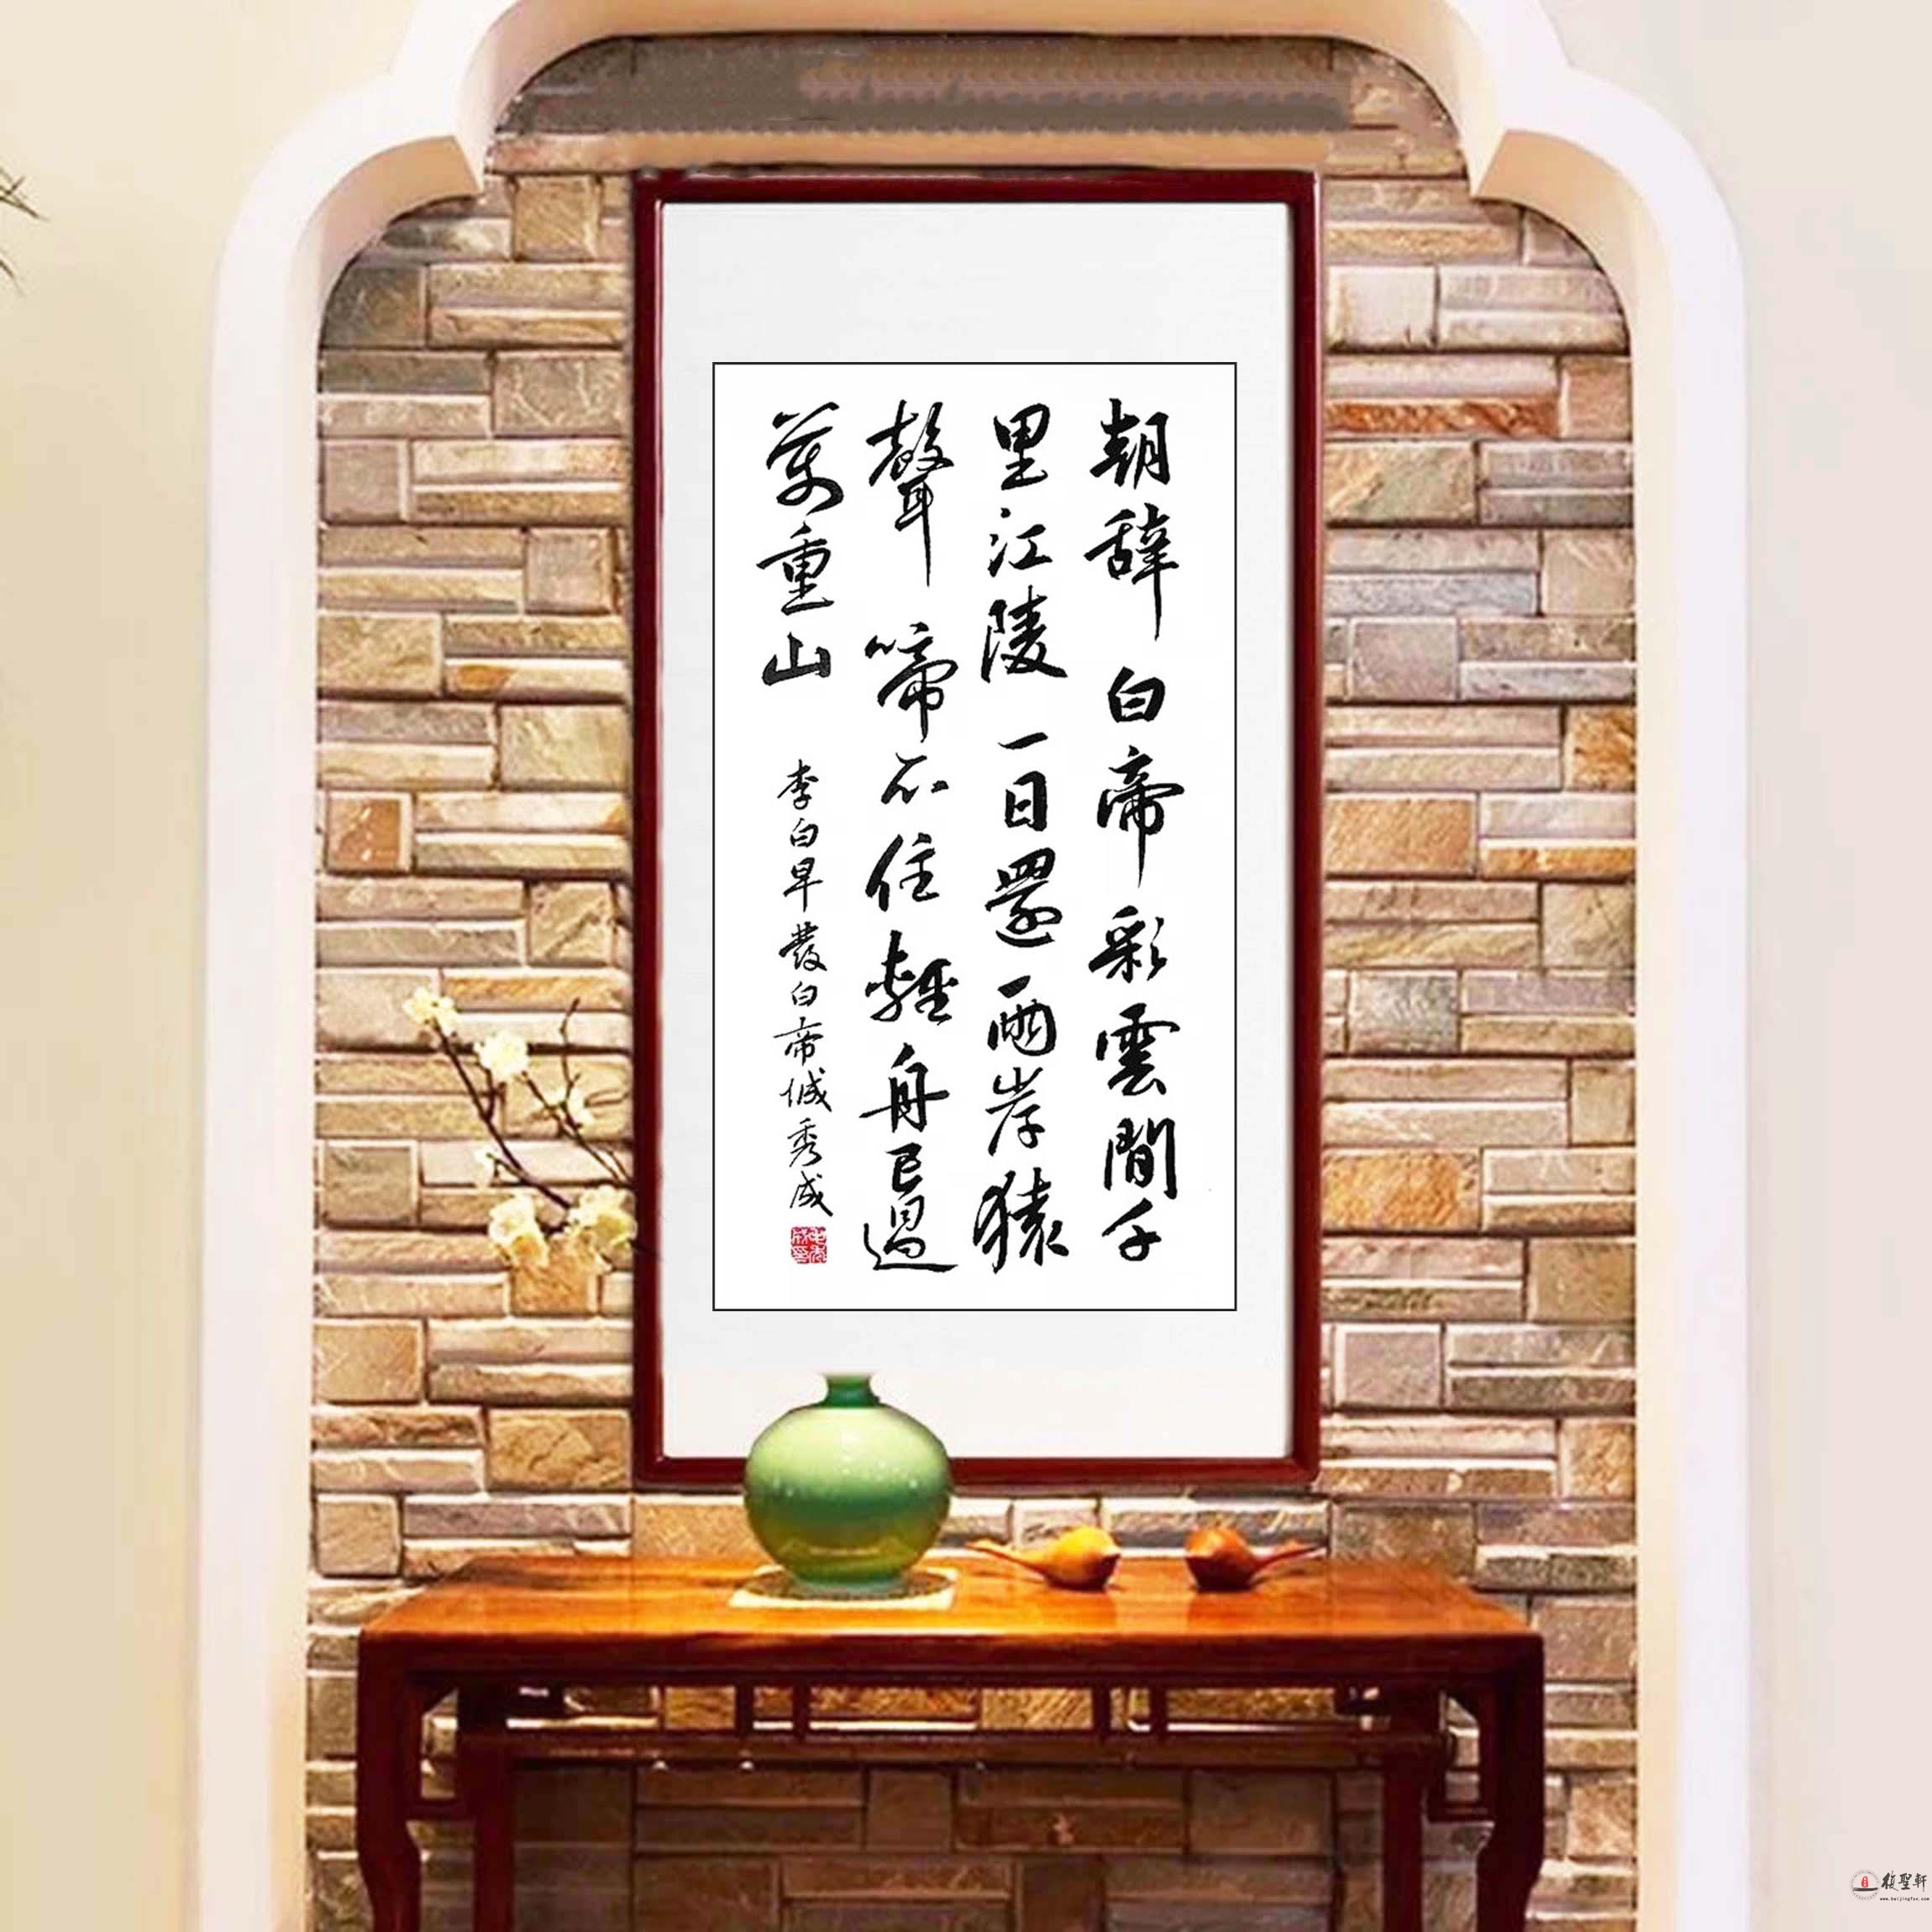 朝辭白帝彩雲間千
里江陵一日還兩岸猿
聲啼不住輕舟已過
萬重山
李白早發白帝城秀成
www.beijingfax.com